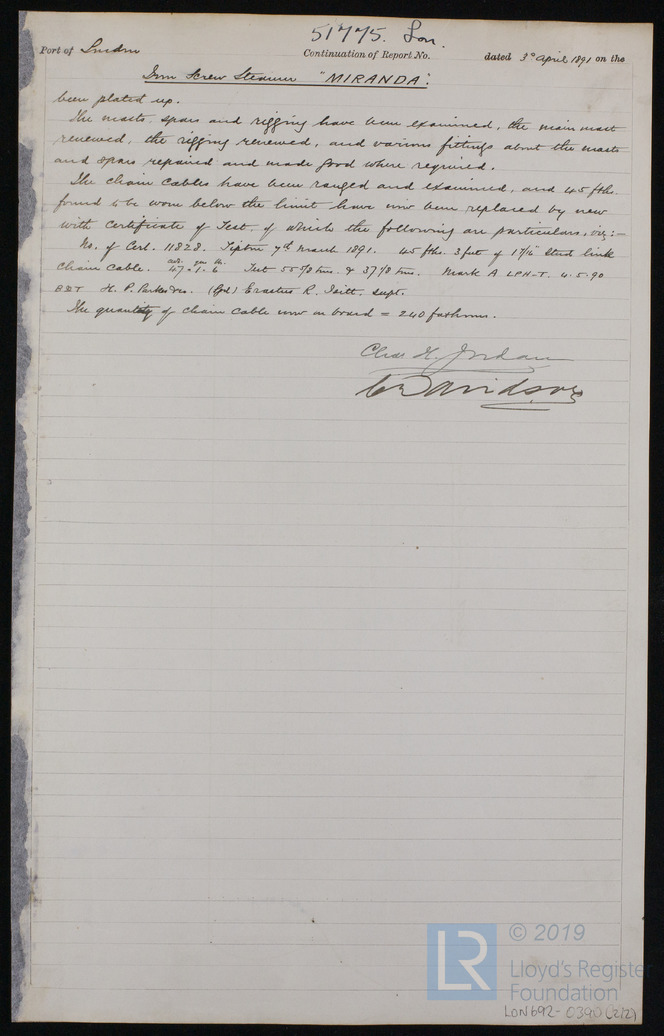 51775. Lon.
Port of London Continuation of Report No. dated 3d April 1891 on the
Iron Screw Steamer "MIRANDA".
been plated up.
The masts, spars and rigging have been examined, the main mast
renewed, the rigging renewed, and various fittings about the masts
and spars repaired and made good where required.
The chain cables have been ranged and examined, and 45 fths.
found to be worn below the limit have now been replaced by new
with certificate of Test, of which the following are particulars, viz:—
No. of Cert. 11828. Tipton 7th March 1891. 45 fths. 3 feet of 1 11/16 Stud link
chain cable. 47-1-6 Test 55 7/8 tons. & 37 7/8 tons. Mark A LPH-T. 4.5.90
H. P. Parkes & Co. (Sgd) Erastus R. Isitt. Supt.
The quantity of chain cable now on board = 240 fathoms.
Chas. H. Jordan
Davidson
© 2019
LR
Lloyd's Register
Foundation
LON692-0390(2/2)